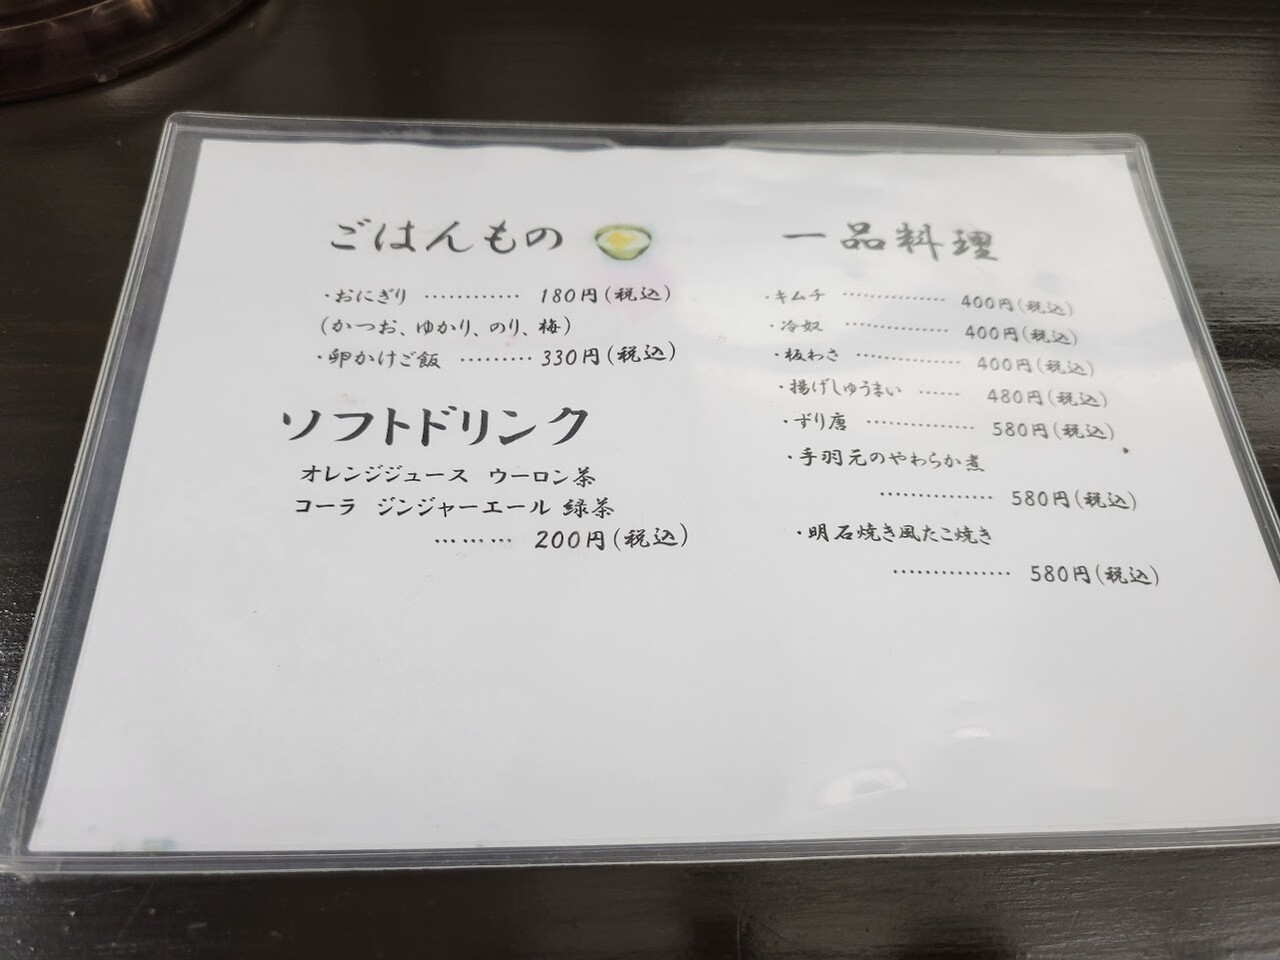 ごはんもの
・おにぎり ………… 180円(税込)
(かつお、ゆかり、のり、梅)
・卵かけご飯 ……… 330円(税込)
ソフトドリンク
オレンジジュース ウーロン茶
コーラ ジンジャーエール 緑茶
……… 200円(税込)
一品料理
・キムチ …………… 400円(税込)
・冷奴 …………… 400円(税込)
・板わさ …………… 400円(税込)
・揚げしゅうまい …… 480円(税込)
・ずり唐 …………… 580円(税込)
・手羽元のやわらか煮
…………… 580円(税込)
・明石焼き風たこ焼き
…………… 580円(税込)